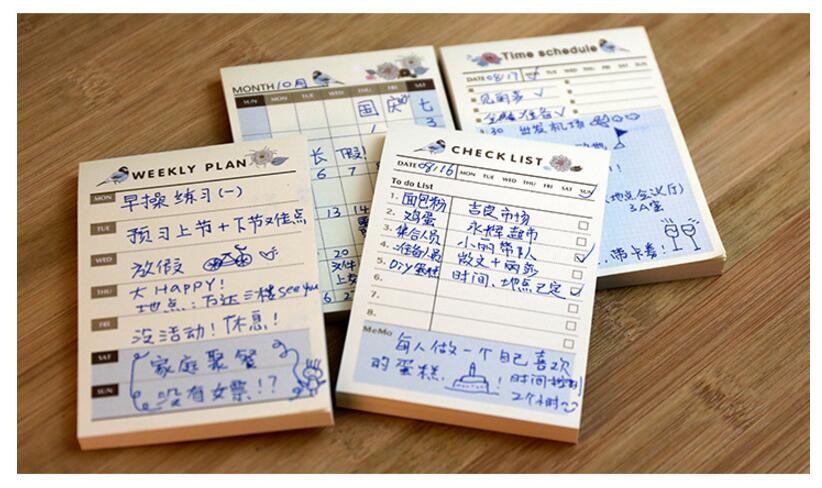 WEEKLY PLAN
MON 早操练习(一)
TUE 预习上节+下节难点
WED 放假
THU 大HAPPY!
地点:万达三楼see you
FRI 没活动!休息!
SAT 家庭聚餐
SUN 没有女票!?
MONTH 10月
SUN MON TUE WED THU FRI SAT
国 庆 七
1 3
长 假
6 7
13 14
20
文件
6
CHECK LIST
DATE 08/16 MON TUE WED THU FRI SAT SUN
To do List
1. 面包粉 吉良市场
2. 鸡蛋 永辉超市
3. 集合人员
4. 准备人员
5. DIY
时间、地点已定
6.
7.
8.
MeMo 每人做一个自己喜欢
的蛋糕, !时间控制
2个小时
Time schedule
DATE 08/17 TUE WED THU FRI SAT
准备
30 出发机场
地点会议厅)
3A室